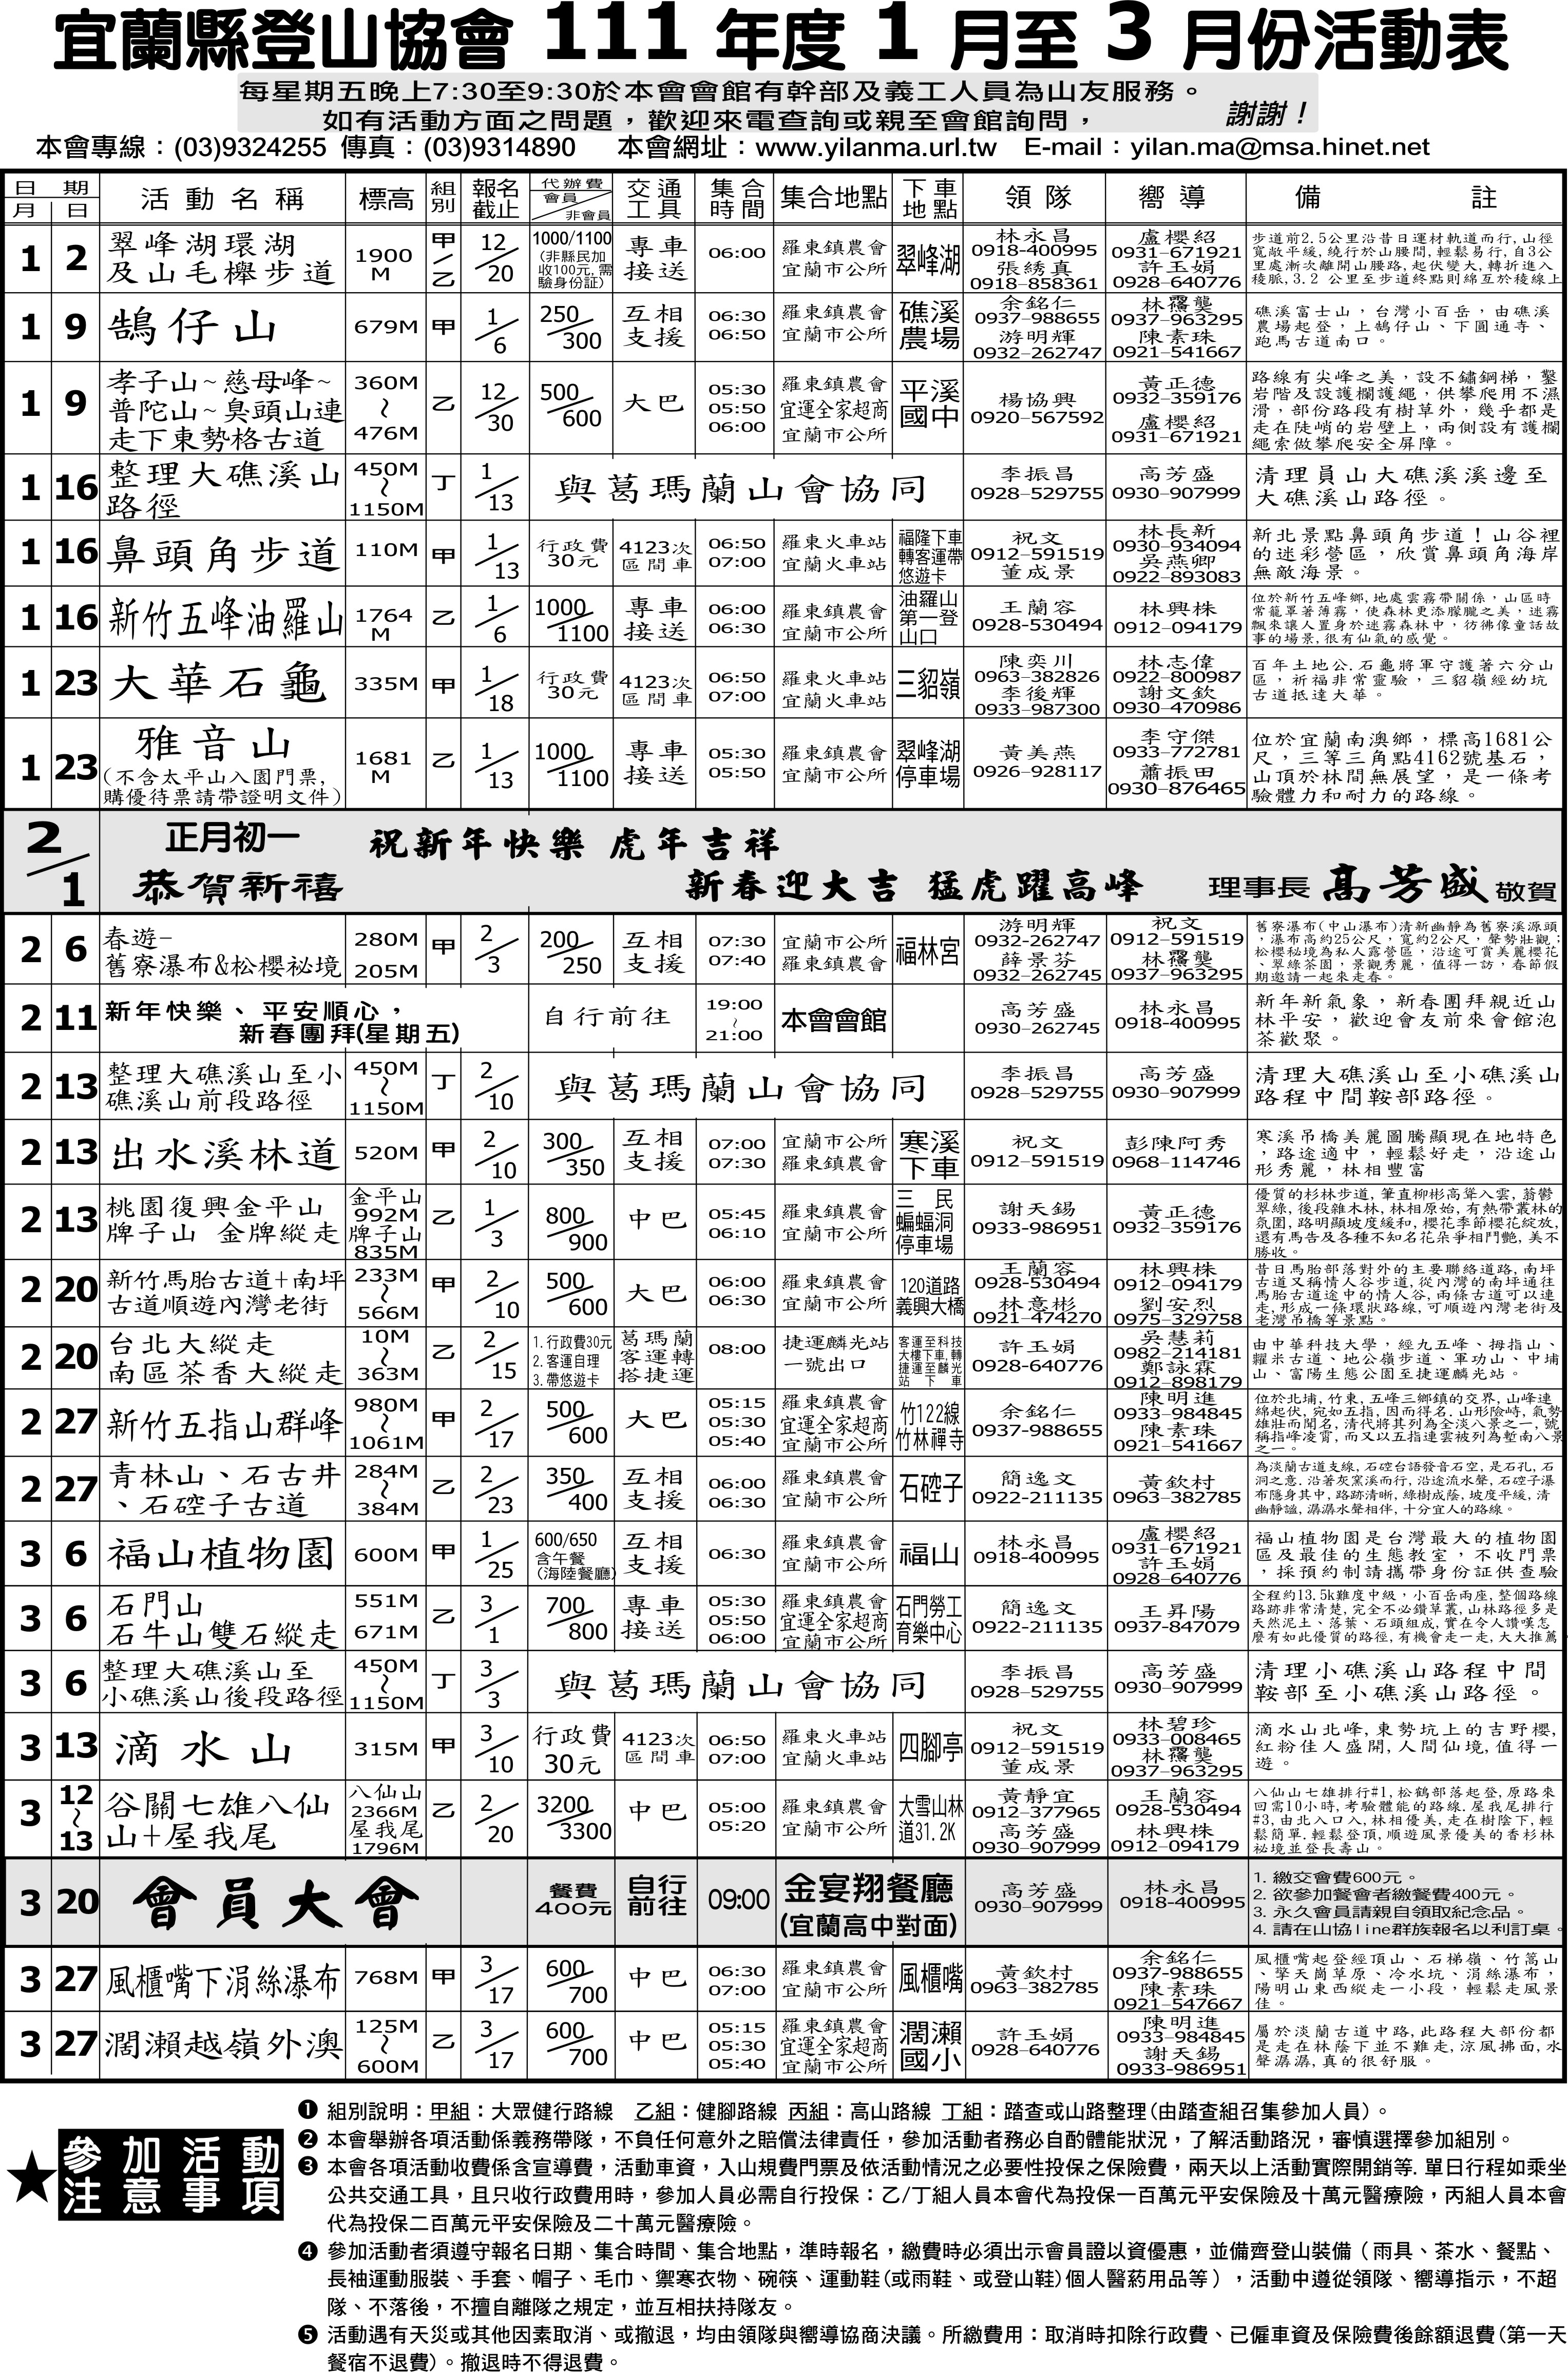 宜蘭縣登山協會 111 年度 1 月至 3 月份活動表
每星期五晚上7:30至9:30於本會會館有幹部及義工人員為山友服務。
如有活動方面之問題，歡迎來電查詢或親至會館詢問， 謝謝！
本會專線：(03)9324255 傳真：(03)9314890 本會網址：www.yilanma.url.tw E-mail：yilan.ma@msa.hinet.net
日期 月 日 活動名稱 標高 組別 報名截止 代辦費 會員/非會員 交通工具 集合時間 集合地點 下車地點 領隊 嚮導 備註
1 2 翠峰湖環湖及山毛櫸步道 1900M 甲/乙 12/20 1000/1100 (非縣民加收100元,需驗身份証) 專車接送 06:00 羅東鎮農會 宜蘭市公所 翠峰湖 林永昌 0918-400995 張綉真 0918-858361 盧櫻紹 0931-671921 許玉娟 0928-640776 步道前2.5公里沿昔日運材軌道而行,山徑寬敞平緩,繞行於山腰間,輕鬆易行,自3公里處漸次離開山腰路,起伏變大,轉折進入稜脈,3.2 公里至步道終點則綿亙於稜線上
1 9 鵠仔山 679M 甲 1/6 250/300 互相支援 06:30 06:50 羅東鎮農會 宜蘭市公所 礁溪農場 余銘仁 0937-988655 游明輝 0932-262747 林靄龑 0937-963295 陳素珠 0921-541667 礁溪富士山，台灣小百岳，由礁溪農場起登，上鵠仔山、下圓通寺、跑馬古道南口。
1 9 孝子山~慈母峰~普陀山~臭頭山連走下東勢格古道 360M~476M 乙 12/30 500/600 大巴 05:30 05:50 06:00 羅東鎮農會 宜運全家超商 宜蘭市公所 平溪國中 楊協興 0920-567592 黃正德 0932-359176 盧櫻紹 0931-671921 路線有尖峰之美，設不鏽鋼梯，鑿岩階及設護欄護繩，供攀爬用不濕滑，部份路段有樹草外，幾乎都是走在陡峭的岩壁上，兩側設有護欄繩索做攀爬安全屏障。
1 16 整理大礁溪山路徑 450M~1150M 丁 1/13 與葛瑪蘭山會協同 李振昌 0928-529755 高芳盛 0930-907999 清理員山大礁溪溪邊至大礁溪山路徑。
1 16 鼻頭角步道 110M 甲 1/13 行政費30元 4123次區間車 06:50 07:00 羅東火車站 宜蘭火車站 福隆下車轉客運帶悠遊卡 祝文 0912-591519 董成景 林長新 0930-934094 吳燕卿 0922-893083 新北景點鼻頭角步道！山谷裡的迷彩營區，欣賞鼻頭角海岸無敵海景。
1 16 新竹五峰油羅山 1764M 乙 1/6 1000/1100 專車接送 06:00 06:30 羅東鎮農會 宜蘭市公所 油羅山第一登山口 王蘭容 0928-530494 林興株 0912-094179 位於新竹五峰鄉,地處雲霧帶關係，山區時常籠罩著薄霧，使森林更添朦朧之美，迷霧飄來讓人置身於迷霧森林中，彷彿像童話故事的場景,很有仙氣的感覺。
1 23 大華石龜 335M 甲 1/18 行政費30元 4123次區間車 06:50 07:00 羅東火車站 宜蘭火車站 三貂嶺 陳奕川 0963-382826 李後輝 0933-987300 林志偉 0922-800987 謝文欽 0930-470986 百年土地公.石龜將軍守護著六分山區，祈福非常靈驗，三貂嶺經幼坑古道抵達大華。
1 23 雅音山 (不含太平山入園門票,購優待票請帶證明文件) 1681M 乙 1/13 1000/1100 專車接送 05:30 05:50 羅東鎮農會 宜蘭市公所 翠峰湖停車場 黃美燕 0926-928117 李守傑 0933-772781 蕭振田 0930-876465 位於宜蘭南澳鄉，標高1681公尺，三等三角點4162號基石，山頂於林間無展望，是一條考驗體力和耐力的路線。
2/1 正月初一 祝新年快樂 虎年吉祥
恭賀新禧 新春迎大吉 猛虎躍高峰 理事長 高芳盛 敬賀
2 6 春遊-舊寮瀑布&松櫻祕境 280M 205M 甲 2/3 200/250 互相支援 07:30 07:40 宜蘭市公所 羅東鎮農會 福林宮 游明輝 0932-262747 薛景芬 0932-262745 祝文 0912-591519 林靄龑 0937-963295 舊寮瀑布(中山瀑布)清新幽靜為舊寮溪源頭，瀑布高約25公尺，寬約2公尺，聲勢壯觀；松櫻秘境為私人露營區，沿途可賞美麗櫻花、翠綠茶園，景觀秀麗，值得一訪，春節假期邀請一起來走春。
2 11 新年快樂、平安順心，新春團拜(星期五) 自行前往 19:00~21:00 本會會館 高芳盛 0930-262745 林永昌 0918-400995 新年新氣象，新春團拜親近山林平安，歡迎會友前來會館泡茶歡聚。
2 13 整理大礁溪山至小礁溪山前段路徑 450M~1150M 丁 2/10 與葛瑪蘭山會協同 李振昌 0928-529755 高芳盛 0930-907999 清理大礁溪山至小礁溪山路程中間鞍部路徑。
2 13 出水溪林道 520M 甲 2/10 300/350 互相支援 07:00 07:30 宜蘭市公所 羅東鎮農會 寒溪下車 祝文 0912-591519 彭陳阿秀 0968-114746 寒溪吊橋美麗圖騰顯現在地特色，路途適中，輕鬆好走，沿途山形秀麗，林相豐富
2 13 桃園復興金平山牌子山 金牌縱走 金平山992M 牌子山835M 乙 1/3 800/900 中巴 05:45 06:10 羅東鎮農會 宜蘭市公所 三民蝙蝠洞停車場 謝天錫 0933-986951 黃正德 0932-359176 優質的杉林步道,筆直柳彬高聳入雲,蓊鬱翠綠,後段雜木林,林相原始,有熱帶叢林的氛圍,路明顯坡度緩和,櫻花季節櫻花綻放,還有馬告及各種不知名花朵爭相鬥艷,美不勝收。
2 20 新竹馬胎古道+南坪古道順遊內灣老街 233M~566M 甲 2/10 500/600 大巴 06:00 06:30 羅東鎮農會 宜蘭市公所 120道路義興大橋 王蘭容 0928-530494 林意彬 0921-474270 林興株 0912-094179 劉安烈 0975-329758 昔日馬胎部落對外的主要聯絡道路,南坪古道又稱情人谷步道,從內灣的南坪通往馬胎古道途中的情人谷,兩條古道可以連走,形成一條環狀路線,可順遊內灣老街及老灣吊橋等景點。
2 20 台北大縱走南區茶香大縱走 10M~363M 乙 2/15 1.行政費30元 2.客運自理 3.帶悠遊卡 葛瑪蘭客運轉搭捷運 08:00 捷運麟光站一號出口 客運至科技大樓下車,轉捷運至麟光站下車 許玉娟 0928-640776 吳慧莉 0982-214181 鄭詠霖 0912-898179 由中華科技大學，經九五峰、拇指山、糶米古道、地公嶺步道、軍功山、中埔山、富陽生態公園至捷運麟光站。
2 27 新竹五指山群峰 980M~1061M 甲 2/17 500/600 大巴 05:15 05:30 05:40 羅東鎮農會 宜運全家超商 宜蘭市公所 竹122線竹林禪寺 余銘仁 0937-988655 陳明進 0933-984845 陳素珠 0921-541667 位於北埔,竹東,五峰三鄉鎮的交界,山峰連綿起伏,宛如五指,因而得名.山形險峙,氣勢雄壯而聞名,清代將其列為全淡八景之一,號稱指峰凌霄,而又以五指連雲被列為塹南八景之一。
2 27 青林山、石古井、石硿子古道 284M~384M 乙 2/23 350/400 互相支援 06:00 06:30 羅東鎮農會 宜蘭市公所 石硿子 簡逸文 0922-211135 黃欽村 0963-382785 為淡蘭古道支線,石硿台語發音石空,是石孔,石洞之意.沿著灰窯溪而行,沿途流水聲,石硿子瀑布隱身其中,路跡清晰,綠樹成蔭,坡度平緩,清幽靜謐,潺潺水聲相伴,十分宜人的路線。
3 6 福山植物園 600M 甲 1/25 600/650 含午餐(海陸餐廳) 互相支援 06:30 羅東鎮農會 宜蘭市公所 福山 林永昌 0918-400995 盧櫻紹 0931-671921 許玉娟 0928-640776 福山植物園是台灣最大的植物園區及最佳的生態教室，不收門票，採預約制請攜帶身份証供查驗
3 6 石門山石牛山雙石縱走 551M 671M 乙 3/1 700/800 專車接送 05:30 05:50 06:00 羅東鎮農會 宜運全家超商 宜蘭市公所 石門勞工育樂中心 簡逸文 0922-211135 王昇陽 0937-847079 全程約13.5k難度中級，小百岳兩座,整個路線路跡非常清楚,完全不必鑽草叢,山林路徑多是天然泥土、落葉、石頭組成,實在令人讚嘆怎麼有如此優質的路徑,有機會走一走,大大推薦
3 6 整理大礁溪山至小礁溪山後段路徑 450M~1150M 丁 3/3 與葛瑪蘭山會協同 李振昌 0928-529755 高芳盛 0930-907999 清理小礁溪山路程中間鞍部至小礁溪山路徑。
3 13 滴水山 315M 甲 3/10 行政費30元 4123次區間車 06:50 07:00 羅東火車站 宜蘭火車站 四腳亭 祝文 0912-591519 董成景 林碧珍 0933-008465 林靄龑 0937-963295 滴水山北峰,東勢坑上的吉野櫻,紅粉佳人盛開,人間仙境,值得一遊。
3 12~13 谷關七雄八仙山+屋我尾 八仙山2366M 屋我尾1796M 乙 2/20 3200/3300 中巴 05:00 05:20 羅東鎮農會 宜蘭市公所 大雪山林道31.2K 黃靜宜 0912-377965 高芳盛 0930-907999 王蘭容 0928-530494 林興株 0912-094179 八仙山七雄排行#1,松鶴部落起登,原路來回需10小時,考驗體能的路線.屋我尾排行#3,由北入口入,林相優美,走在樹陰下,輕鬆簡單.輕鬆登頂,順遊風景優美的香杉林祕境並登長壽山。
3 20 會員大會 餐費400元 自行前往 09:00 金宴翔餐廳(宜蘭高中對面) 高芳盛 0930-907999 林永昌 0918-400995 1. 繳交會費600元。 2. 欲參加餐會者繳餐費400元。 3. 永久會員請親自領取紀念品。 4. 請在山協line群族報名以利訂桌。
3 27 風櫃嘴下涓絲瀑布 768M 甲 3/17 600/700 中巴 06:30 07:00 羅東鎮農會 宜蘭市公所 風櫃嘴 黃欽村 0963-382785 余銘仁 0937-988655 陳素珠 0921-547667 風櫃嘴起登經頂山、石梯嶺、竹篙山、擎天崗草原、冷水坑、涓絲瀑布，陽明山東西縱走一小段，輕鬆走風景佳。
3 27 濶瀨越嶺外澳 125M~600M 乙 3/17 600/700 中巴 05:15 05:30 05:40 羅東鎮農會 宜運全家超商 宜蘭市公所 濶瀨國小 許玉娟 0928-640776 陳明進 0933-984845 謝天錫 0933-986951 屬於淡蘭古道中路,此路程大部份都是走在林蔭下並不難走,涼風拂面,水聲潺潺,真的很舒服。
★參加活動注意事項
❶ 組別說明：甲組：大眾健行路線 乙組：健腳路線 丙組：高山路線 丁組：踏查或山路整理(由踏查組召集參加人員)。
❷ 本會舉辦各項活動係義務帶隊，不負任何意外之賠償法律責任，參加活動者務必自酌體能狀況，了解活動路況，審慎選擇參加組別。
❸ 本會各項活動收費係含宣導費，活動車資，入山規費門票及依活動情況之必要性投保之保險費，兩天以上活動實際開銷等. 單日行程如乘坐
公共交通工具，且只收行政費用時，參加人員必需自行投保：乙/丁組人員本會代為投保一百萬元平安保險及十萬元醫療險，丙組人員本會
代為投保二百萬元平安保險及二十萬元醫療險。
❹ 參加活動者須遵守報名日期、集合時間、集合地點，準時報名，繳費時必須出示會員證以資優惠，並備齊登山裝備（雨具、茶水、餐點、
長袖運動服裝、手套、帽子、毛巾、禦寒衣物、碗筷、運動鞋(或雨鞋、或登山鞋)個人醫葯用品等），活動中遵從領隊、嚮導指示，不超
隊、不落後，不擅自離隊之規定，並互相扶持隊友。
❺ 活動遇有天災或其他因素取消、或撤退，均由領隊與嚮導協商決議。所繳費用：取消時扣除行政費、已僱車資及保險費後餘額退費(第一天
餐宿不退費)。撤退時不得退費。